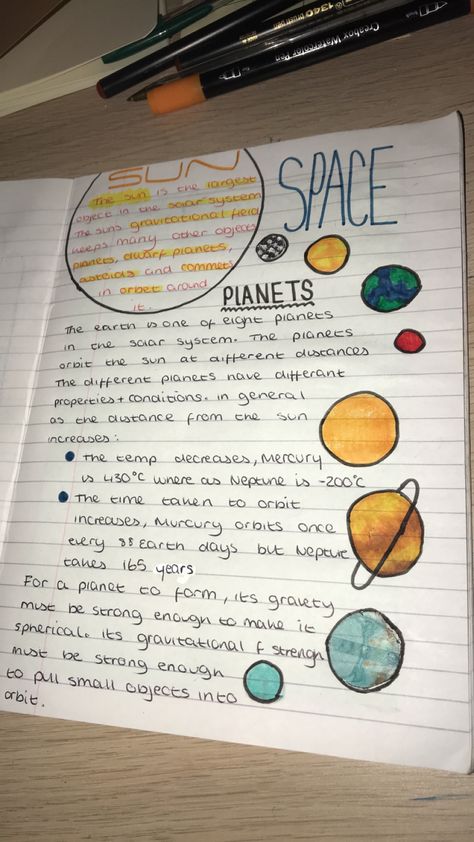 1340
Creabox Watercolor Pen
SUN
The sun is the largest
object in the solar system
The suns gravitational field
keeps many other objects
planets, dwarf planets,
asteriods and commets
in orbet around
it.
SPACE
PLANETS
The earth is one of eight planets
in the solar system. The planets
orbit the sun at different distances
The different planets have differant
properties + conditions. in general
as the distance from the sun
increases:
• The temp decreases, Mercury
is 430°C where as Neptune is -200°C
• The time taken to orbit
increases, Murcury orbits once
every 88 Earth days but Neptune
takes 165 years
For a planet to form, its graviety
must be strong enough to make it
spherical. its gravitational f strengh
must be strong enough
to pull small objects into
orbit.